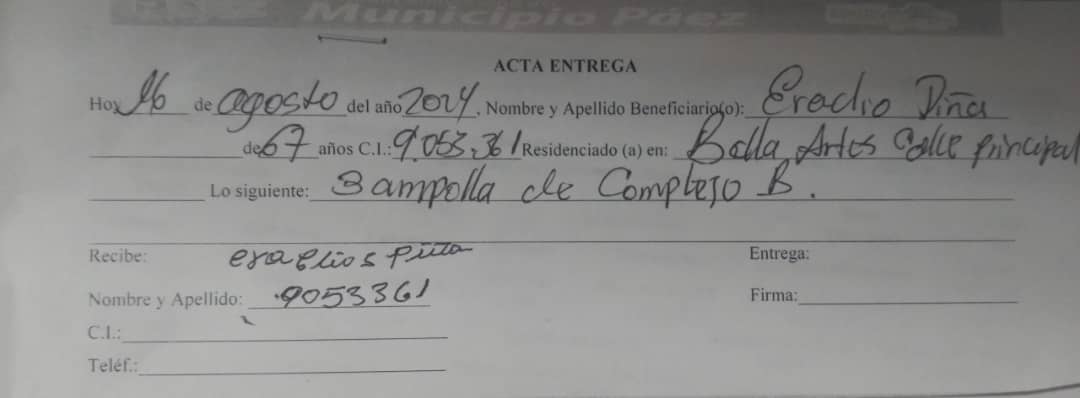 Municipio Páez
ACTA ENTREGA
Hoy 16 de agosto del año 2024, Nombre y Apellido Beneficiario(o): Eradio Piña
de 67 años C.I.: 9.053.361 Residenciado (a) en: Bella Artes Calle principal
Lo siguiente: 3 ampolla de Complejo B.
Recibe: Entrega:
Nombre y Apellido: 9053361 Firma:
C.I.:
Teléf.: